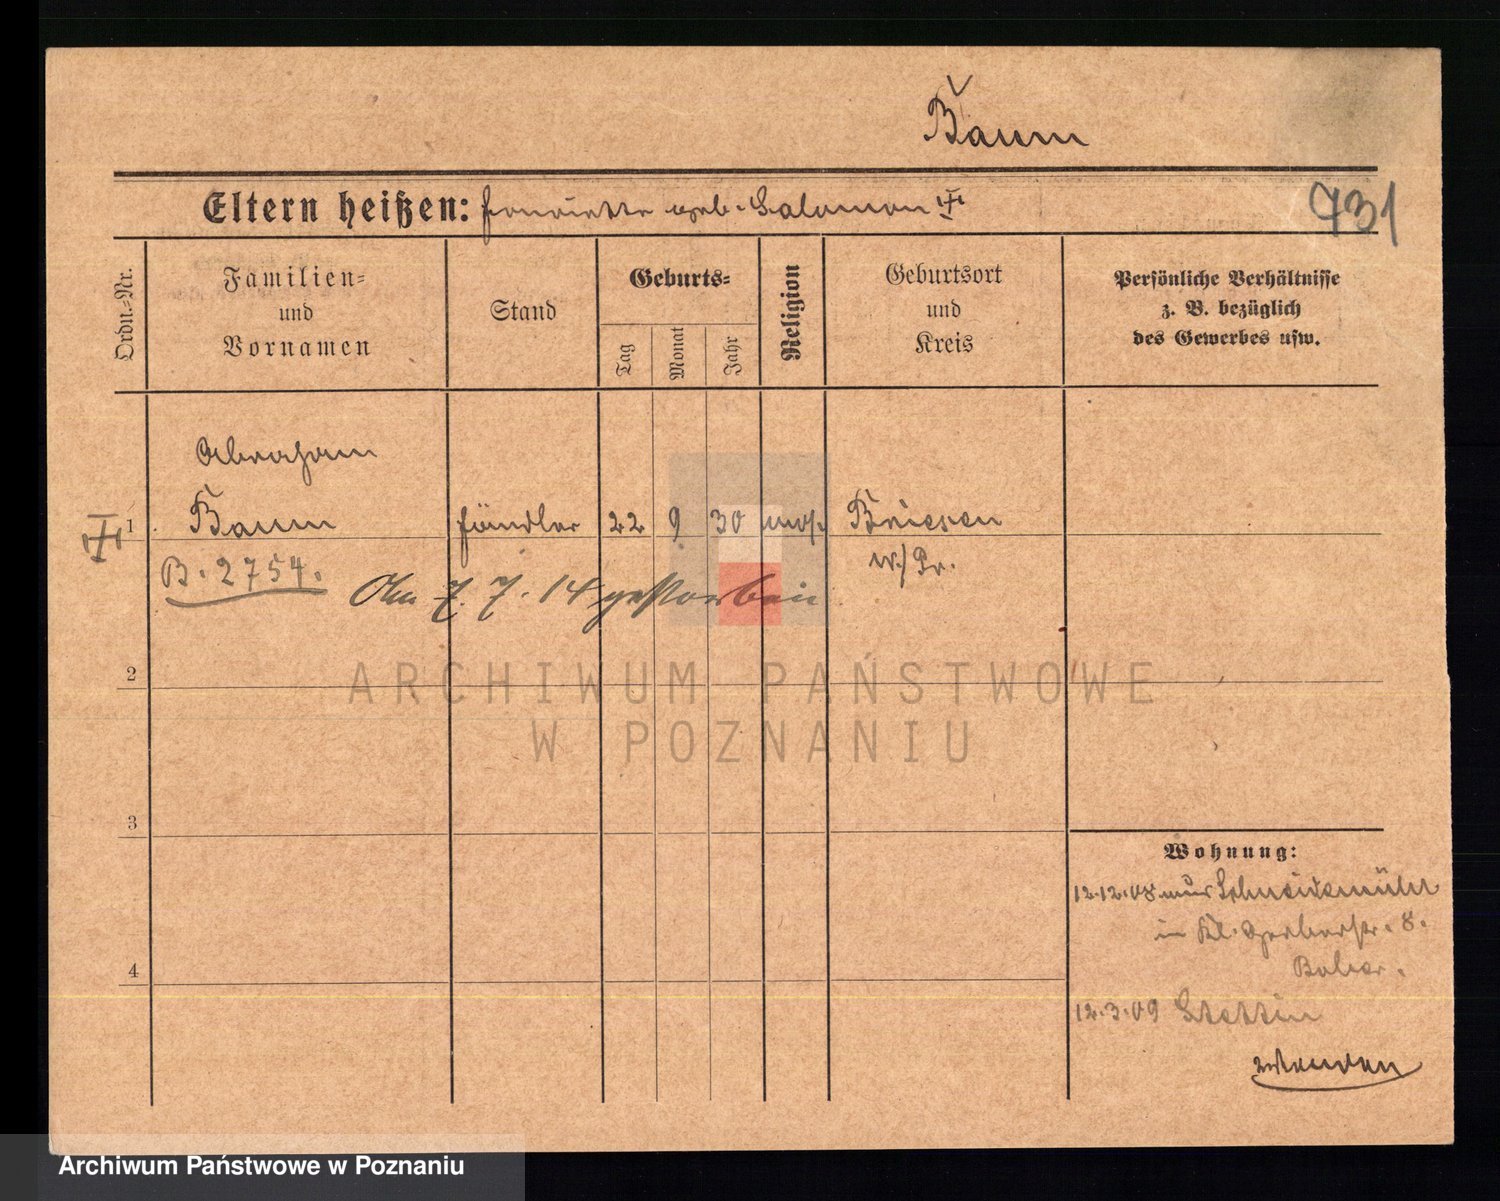 Baum
Eltern heißen: Henriette geb. Salomon
731
Ordn.-Nr.
Familien-
und
Vornamen
Stand
Geburts-
Tag
Monat
Jahr
Religion
Geburtsort
und
Kreis
Persönliche Verhältnisse
z. B. bezüglich
des Gewerbes usw.
Abraham
1 Baum Händler 22 9 30 mos. Briesen
W./Pr.
B. 2754.
Am 7. 7. 14 gestorben
2
ARCHIWUM PAŃSTWOWE
W POZNANIU
3
Wohnung:
12.12.08 aus Schneidemühl
in Kl. Gerberstr. 8.
4
12.3.09 Stettin
Archiwum Państwowe w Poznaniu